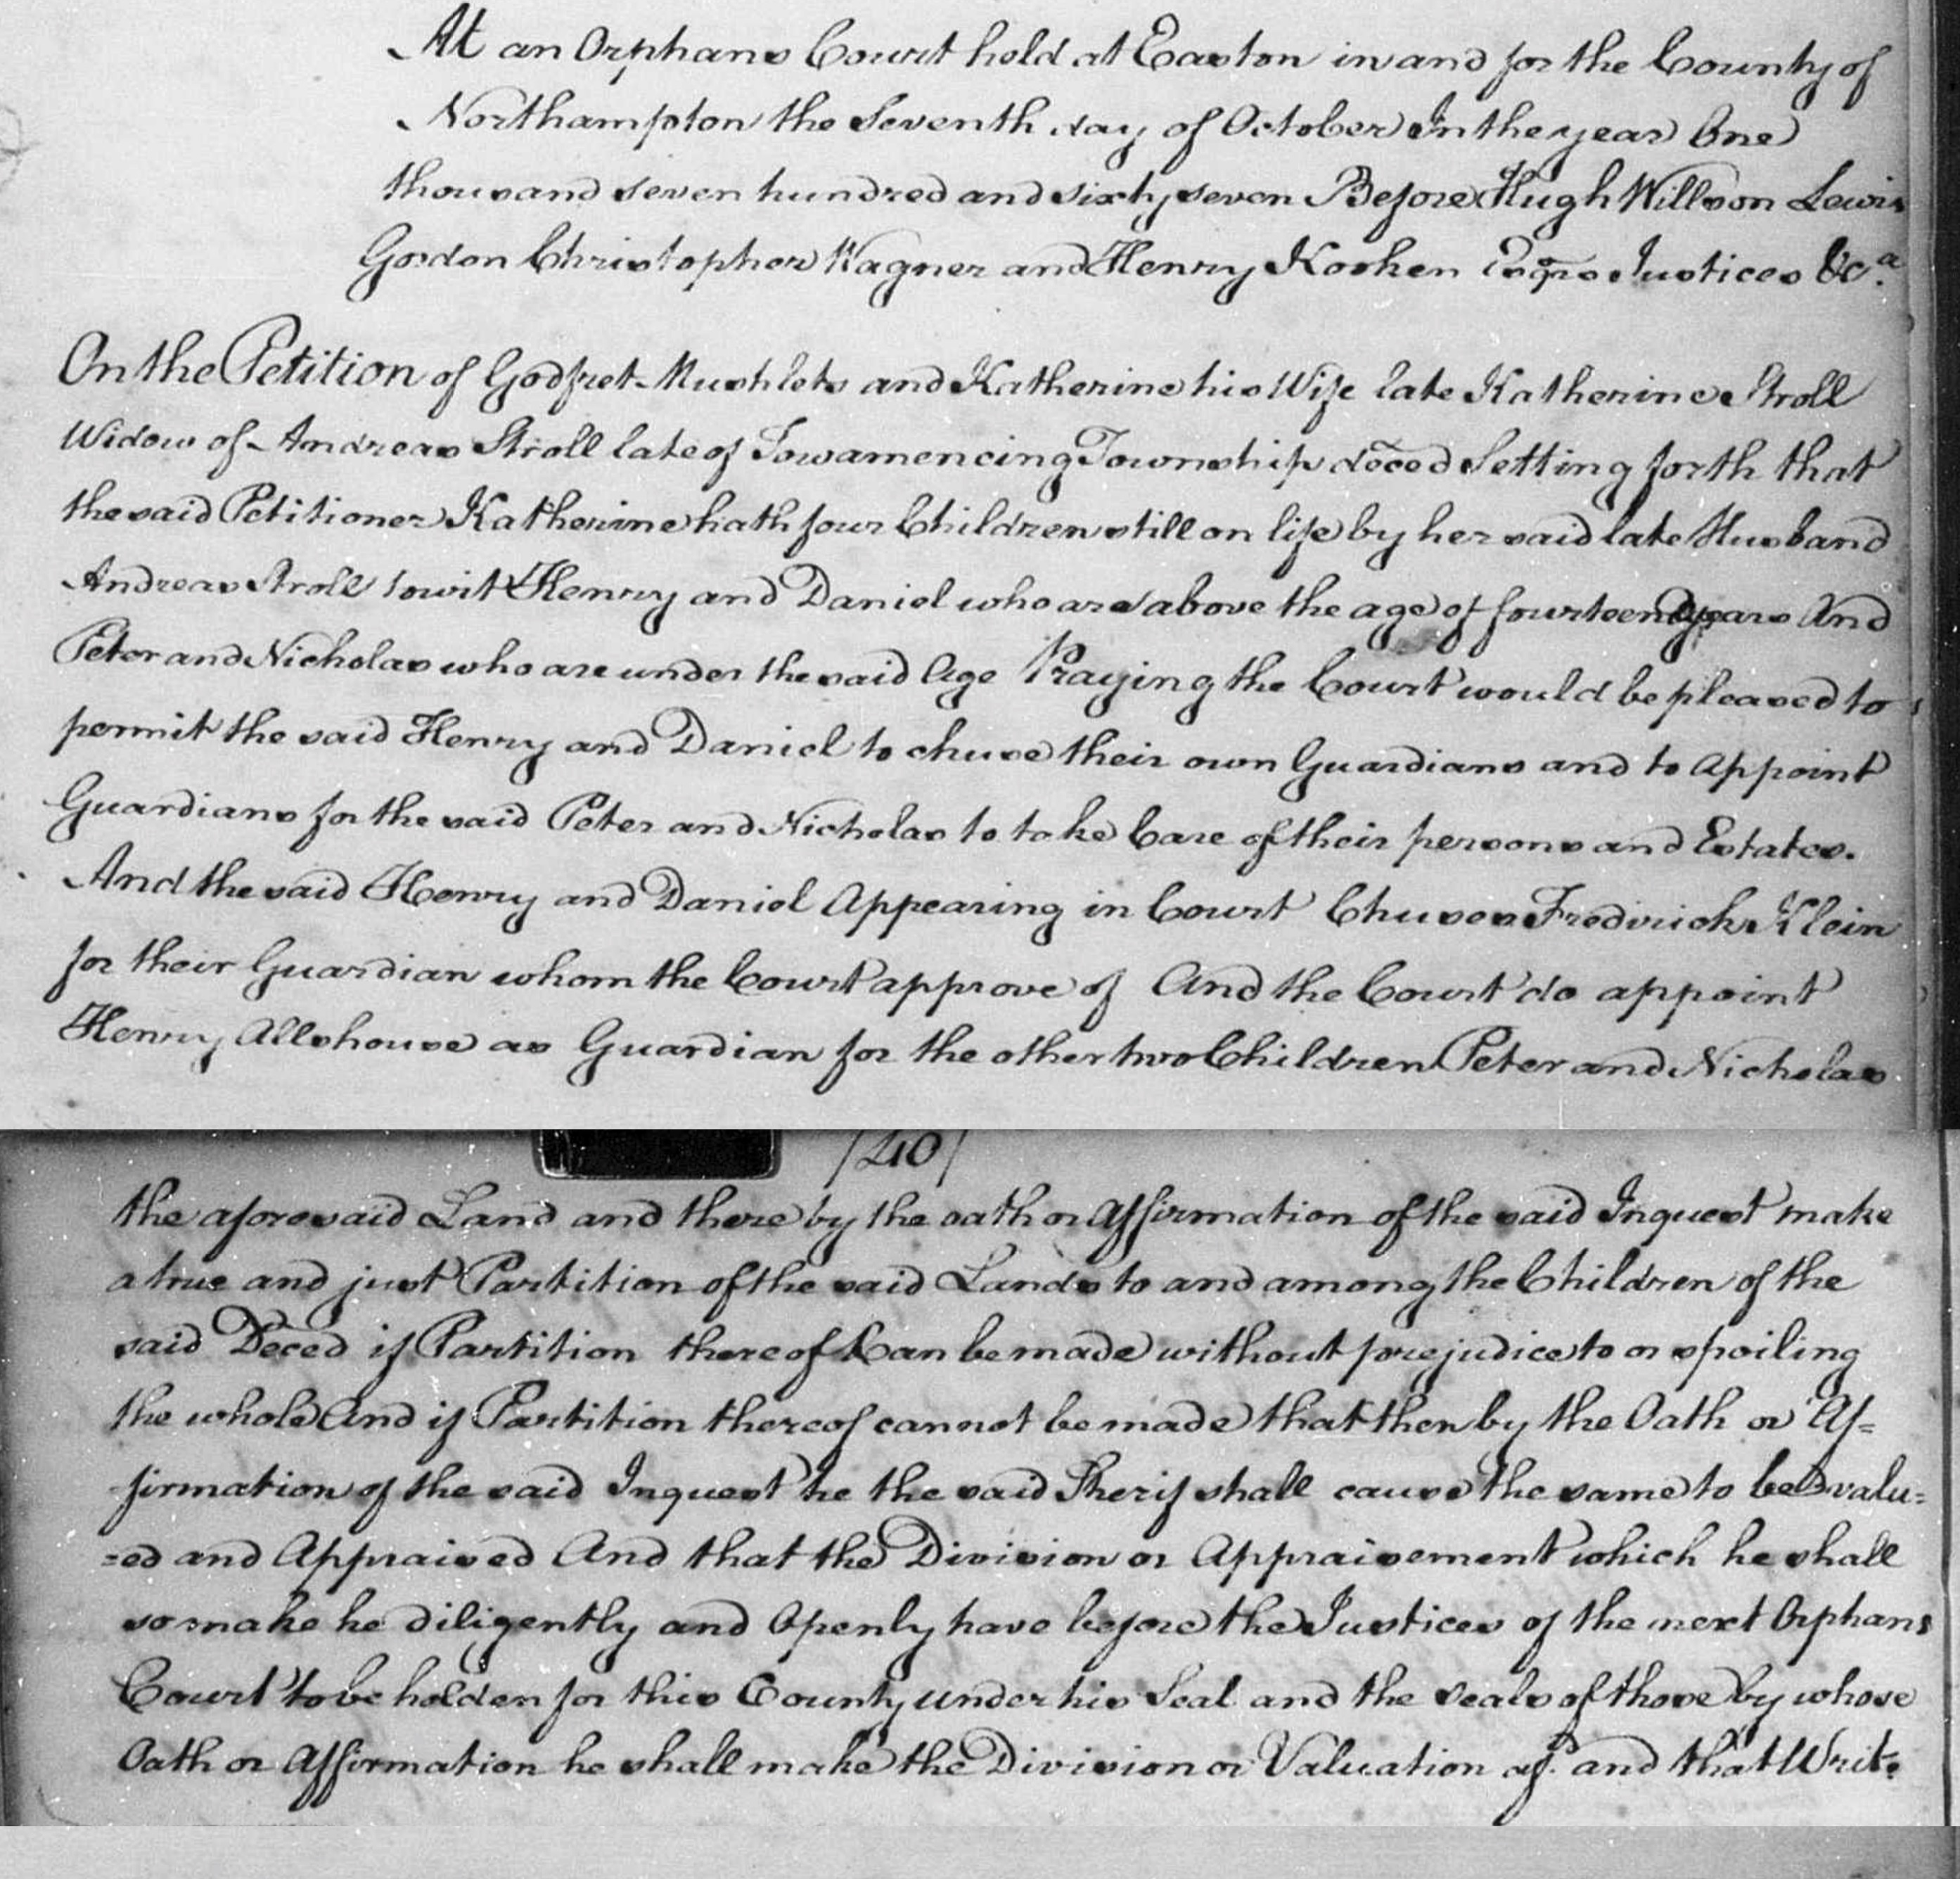 At an Orphans Court held at Easton in and for the County of
Northampton the Seventh day of October In the year One
thousand seven hundred and sixty seven Before Hugh Willson Lewis
Gordon Christopher Wagner and Henry Kooken Esqrs Justices &ca.
On the Petition of Godfret Mushlets and Katherine his Wife late Katherine Stroll
Widow of Andreas Stroll late of Towamencing Township deced Setting forth that
the said Petitioner Katherine hath four Children still on life by her said late Husband
Andreas Stroll towit Henry and Daniel who are above the age of fourteen years And
Peter and Nicholas who are under the said Age Praying the Court would be pleased to
permit the said Henry and Daniel to chuse their own Guardians and to Appoint
Guardians for the said Peter and Nicholas to take Care of their persons and Estates.
And the said Henry and Daniel Appearing in Court Chuses Fredrick Klein
for their Guardian whom the Court approve of And the Court do appoint
Henry Allshouse as Guardian for the other two Children Peter and Nicholas
/40/
the aforesaid Land and there by the oath or Affirmation of the said Inquest make
a true and just Partition of the said Lands to and among the Children of the
said Deced if Partition thereof Can be made without prejudice to or spoiling
the whole And if Partition thereof cannot be made that then by the Oath or Af=
firmation of the said Inquest he the said Sherif shall cause the same to be valu=
=ed and Appraised And that the Division or Appraisement which he shall
so make he diligently and Openly have before the Justices of the next Orphans
Court to be holden for this County under his Seal and the seals of those by whose
Oath or Affirmation he shall make the Division or Valuation afd. and that Writ.